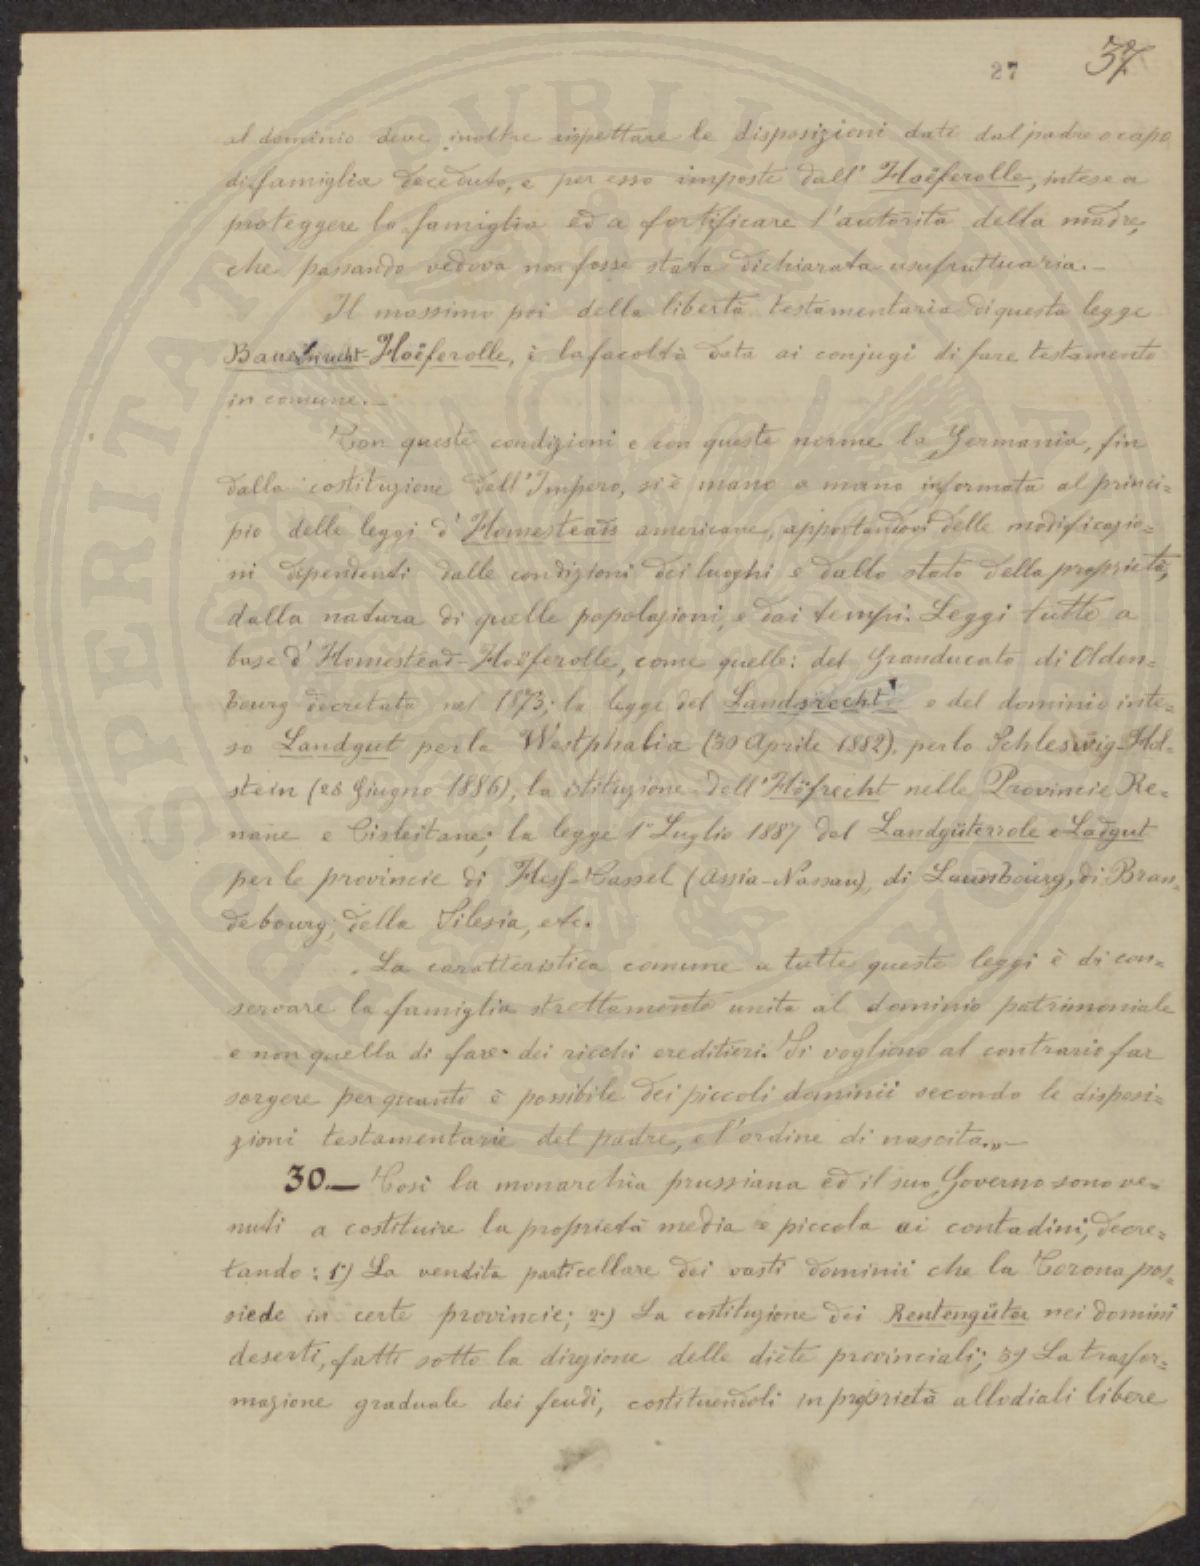 27 37
al dominio deve inoltre rispettare le disposizioni date dal padre o capo
di famiglia deceduto, e per esso imposte dall' Hoëferolle, intese a
proteggere la famiglia ed a fortificare l'autorità della madre,
che passando vedova non fosse stata dichiarata usufruttuaria.—
Il massimo poi della libertà testamentaria di questa legge
Hoëferolle, è la facoltà data ai conjugi di fare testamento
in comune.—
Con queste condizioni e con queste norme la Germania, fin
dalla costituzione dell'Impero, si è mano a mano informata al princi=
pio delle leggi d'Homesteads americane, apportandovi delle modificazio=
ni dipendenti dalle condizioni dei luoghi e dallo stato della proprietà,
dalla natura di quelle popolazioni, e dai tempi. Leggi tutte a
base d'Homestead-Hoëferolle, come quelle: del Granducato di Olden=
bourg decretata nel 1873; la legge del Landsrecht e del dominio inte=
so Landgut per la Westphalia (30 Aprile 1882), per lo Schleswig-Hol=
stein (28 Giugno 1886), la istituzione dell'Höfrecht nelle Provincie Re=
nane e Cisleitane; la legge 1° Luglio 1887 del Landgüterrole e Ladgut
per le provincie di Hess-Cassel (Assia-Nassau), di di Bran=
debourg, della Silesia, etc.
La caratteristica comune a tutte queste leggi è di con=
servare la famiglia strettamente unita al dominio patrimoniale
e non quella di fare dei ricchi ereditieri. Si vogliono al contrario far
sorgere per quanto è possibile dei piccoli dominii secondo le disposi=
zioni testamentarie del padre, e l'ordine di nascita.„—
30.— Così la monarchia prussiana ed il suo Governo sono ve=
nuti a costituire la proprietà media e piccola ai contadini, decre=
tando: 1°) La vendita particellare dei vasti dominii che la Corona pos=
siede in certe provincie; 2°) La costituzione dei Rentengüter nei domini
deserti, fatti sotto la direzione delle diete provinciali; 3°) La trasfor=
mazione graduale dei feudi, costituendoli in proprietà allodiali libere
SPERITATE PUBLICA